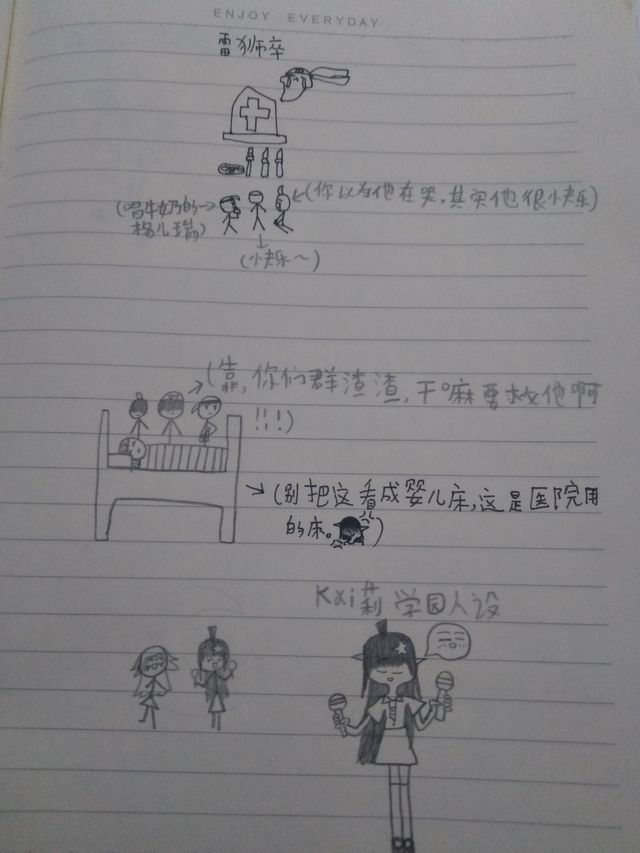 ENJOY EVERYDAY
雷狮卒
(你以为他在哭,其实他很快乐)
(喝牛奶的
格儿瑞)
(快乐～)
(靠,你们群渣渣,干嘛要救他啊
!!!)
(别把这看成婴儿床,这是医院用
的床。)
Kai莉 学园人设